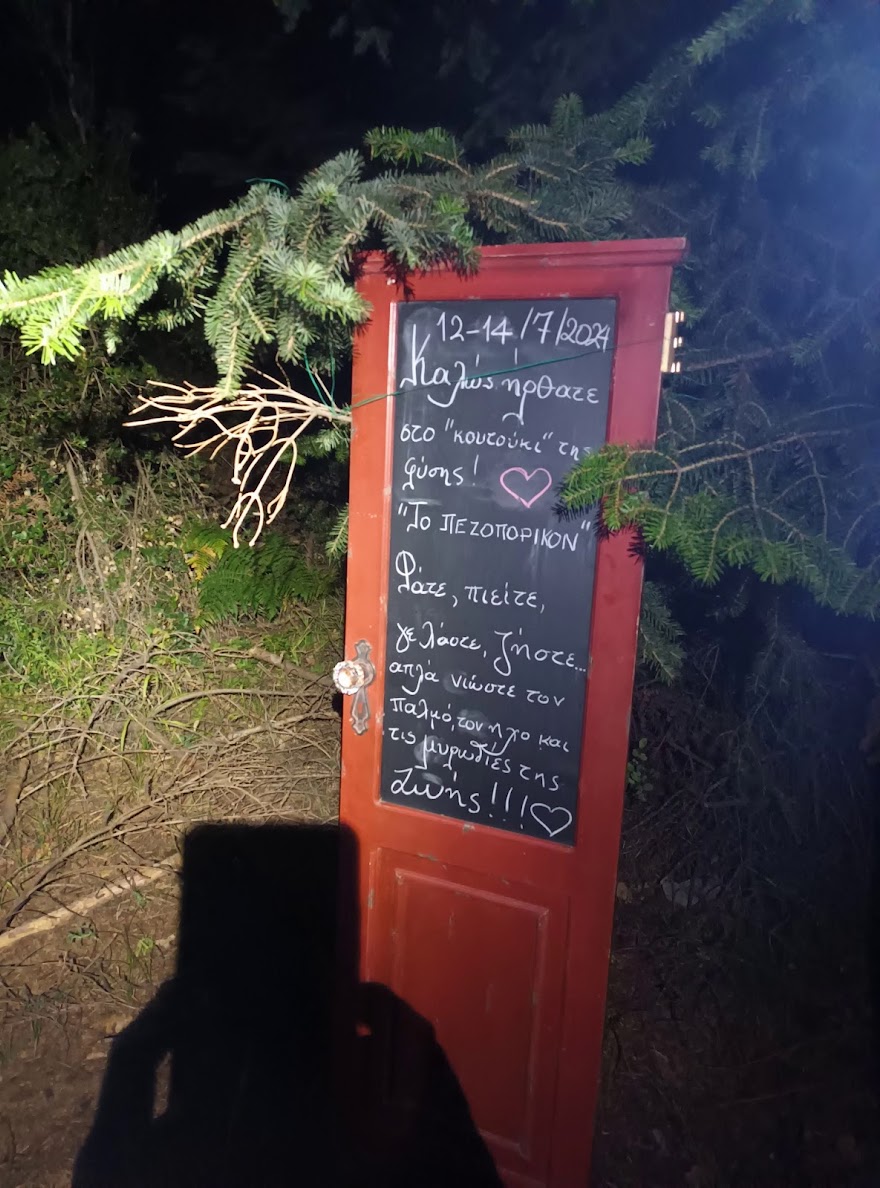 12-14/7/2024
Καλώς ήρθατε
στο "κουτούκι" της
φύσης!
"Το ΠΕΖΟΠΟΡΙΚΟΝ"
Φάτε, πιείτε,
γελάστε, ζήστε...
απλά νιώστε τον
παλμό, τον ήχο και
τις μυρωδιές της
Ζωής!!!